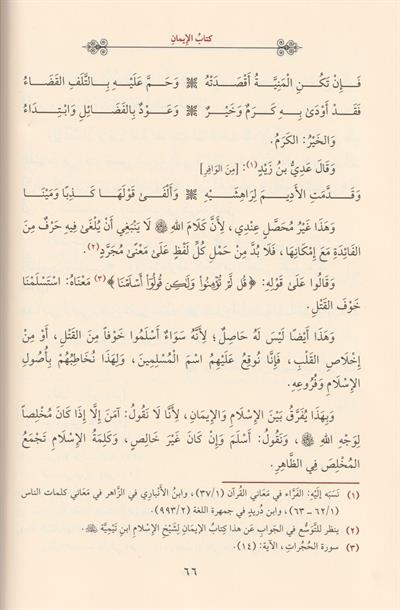 كتابُ الإيمانِ
فَإِنْ تَكُـنِ الْمَنِيَّـةُ أَقْصَدَتْهُ ۞ وَحَـمَّ عَلَيْـهِ بِـالتَّلَفِ القَضَـاءُ
فَقَدْ أَوْدَىٰ بِـهِ كَـرَمٌ وَخَيْـرٌ ۞ وَعَـوْدٌ بِالفَضَـائِلِ وَابْتِـدَاءُ
وَالخَيْرُ: الكَرَمُ.
وَقَالَ عَدِيُّ بنُ زَيْدٍ(١): [مِنَ الوَافِرِ]
وَقَـدَّمَتِ الأَدِيـمَ لِرَاهِشَيْهِ ۞ وَأَلْفَـىٰ قَوْلَهَـا كَـذِبًـا وَمَيْنَـا
وَهَذَا غَيْرُ مُحَصَّلٍ عِنْدِي، لِأَنَّ كَلَامَ اللهِ ﷻ لَا يَنْبَغِي أَنْ يُلْغَىٰ فِيهِ حَرْفٌ مِنَ
الفَائِدَةِ مَعَ إِمْكَانِهَا، فَلَا بُدَّ مِنْ حَمْلِ كُلِّ لَفْظٍ عَلَىٰ مَعْنًىٰ مُجَرَّدٍ(٢).
وَقَالُوا عَلَىٰ قَوْلِهِ: ﴿قُل لَّمْ تُؤْمِنُوا۟ وَلَـٰكِن قُولُوٓا۟ أَسْلَمْنَا﴾(٣) مَعْنَاهُ: اسْتَسْلَمْنَا
خَوْفَ القَتْلِ.
وَهَذَا أَيْضًا لَيْسَ لَهُ حَاصِلٌ؛ لِأَنَّهُ سَوَاءٌ أَسْلَمُوا خَوْفًا مِنَ القَتْلِ، أَوْ مِنْ
إِخْلَاصِ القَلْبِ، فَإِنَّا نُوقِعُ عَلَيْهِمُ اسْمَ الْمُسْلِمِينَ، وَلِهَذَا نُخَاطِبُهُمْ بِأُصُولِ
الإِسْلَامِ وَفُرُوعِهِ.
وَبِهَذَا يُفَرَّقُ بَيْنَ الإِسْلَامِ وَالإِيمَانِ، لِأَنَّا لَا نَقُولُ: آمَنَ إِلَّا إِذَا كَانَ مُخْلِصًا
لِوَجْهِ اللهِ ﷻ، وَنَقُولُ: أَسْلَمَ وَإِنْ كَانَ غَيْرَ خَالِصٍ، وَكَلِمَةُ الإِسْلَامِ تَجْمَعُ
الْمُخْلِصَ فِي الظَّاهِرِ.
(١) نَسَبَه إِلَيْهِ: الفَرَّاء في مَعَاني القُرآن (٣٧/١)، وابنُ الأَنْبَاري في الزَّاهر في مَعَاني كلمات الناس
(٦٢/١ – ٦٣)، وابن دُريدٍ في جمهرة اللغة (٩٩٣/٢).
(٢) ينظر للتَّوَسُّع في الجَوابِ عَن هذا كِتابُ الإيمَانِ لِشَيْخِ الإسْلام ابنِ تَيْمِيَّة
(٣) سورة الحُجُراتِ، الآية: (١٤).
٦٦